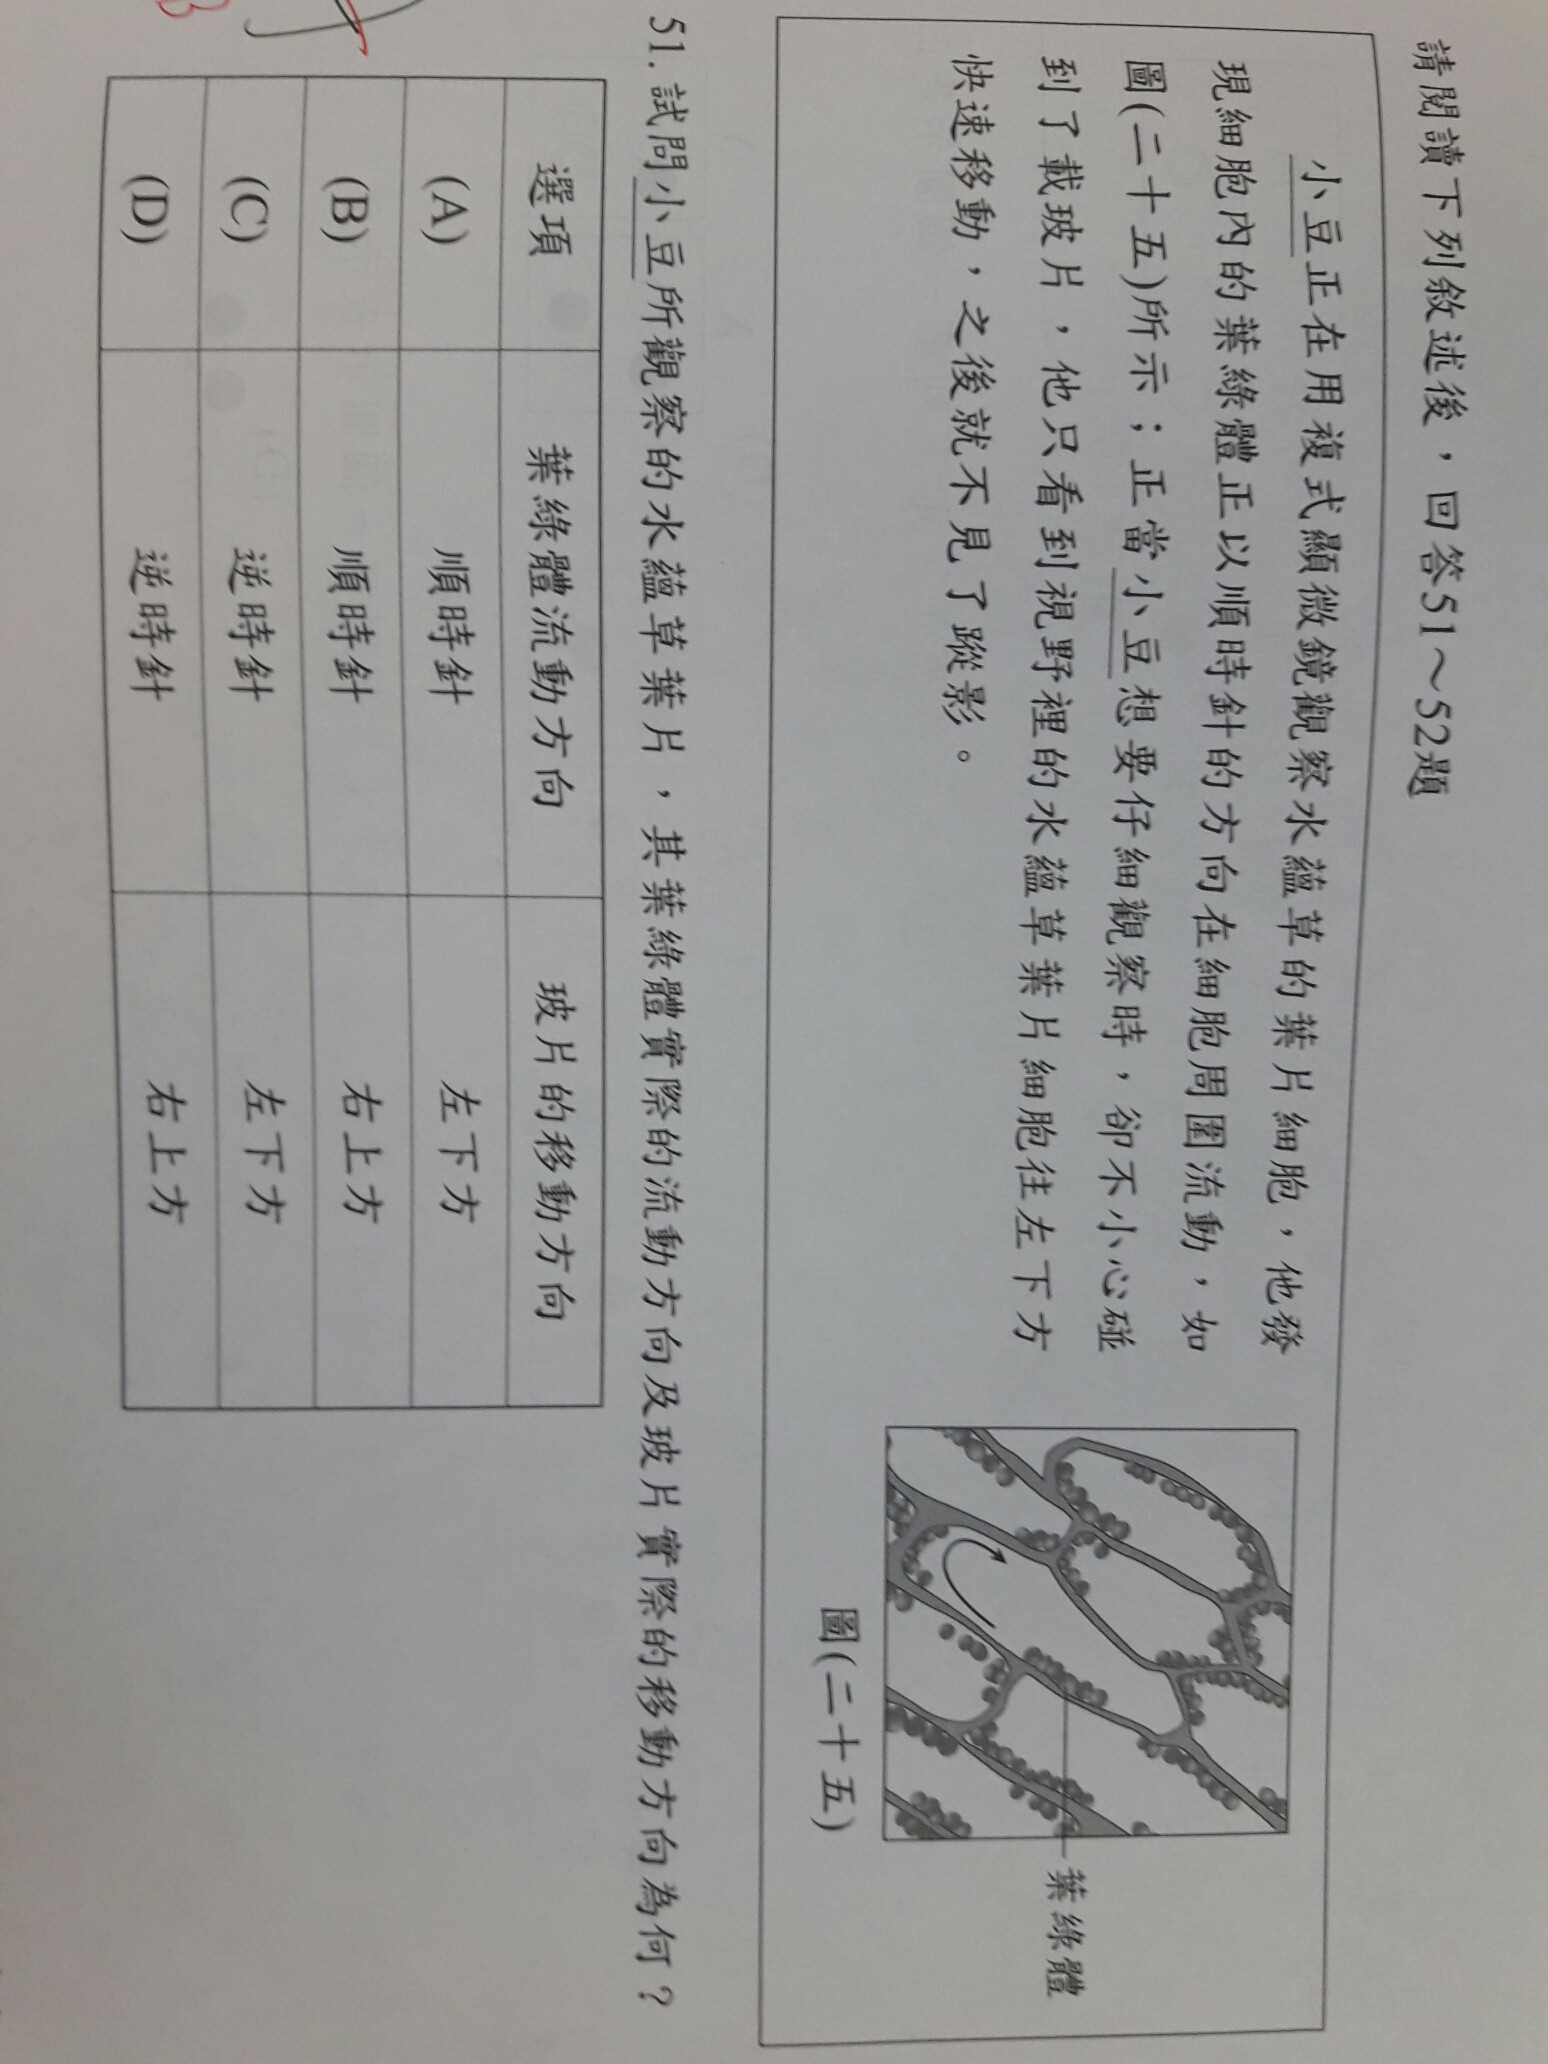 請閱讀下列敘述後，回答51～52題
小豆正在用複式顯微鏡觀察水蘊草的葉片細胞，他發
現細胞內的葉綠體正以順時針的方向在細胞周圍流動，如
圖(二十五)所示；正當小豆想要仔細觀察時，卻不小心碰
到了載玻片，他只看到視野裡的水蘊草葉片細胞往左下方
快速移動，之後就不見了蹤影。
葉綠體
圖(二十五)
51. 試問小豆所觀察的水蘊草葉片，其葉綠體實際的流動方向及玻片實際的移動方向為何？
選項 葉綠體流動方向 玻片的移動方向
(A) 順時針 左下方
(B) 順時針 右上方
(C) 逆時針 左下方
(D) 逆時針 右上方